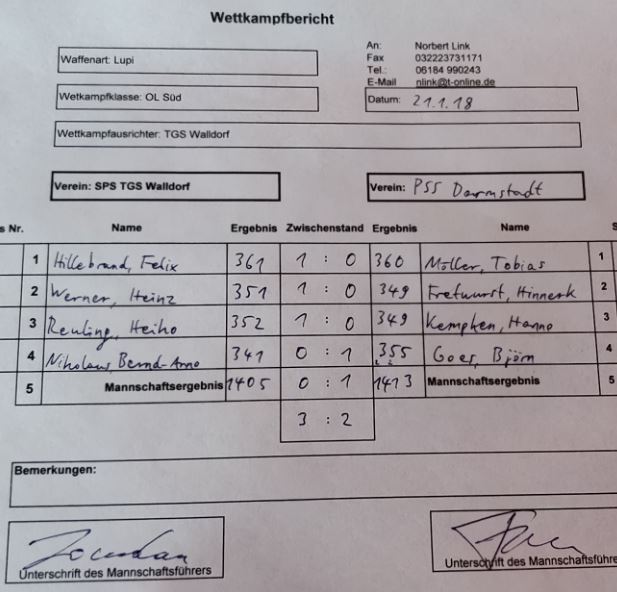 Wettkampfbericht
Waffenart: Lupi
An: Norbert Link
Fax 032223731171
Tel.: 06184 990243
E-Mail nlink@t-online.de
Wetkampfklasse: OL Süd
Datum: 21.1.18
Wettkampfausrichter: TGS Walldorf
Verein: SPS TGS Walldorf
Verein: PSS Darmstadt
s Nr. Name Ergebnis Zwischenstand Ergebnis Name S
1 Hillebrand, Felix 361 1 : 0 360 Möller, Tobias 1
2 Werner, Heinz 351 1 : 0 349 Fretwurst, Hinnerk 2
3 Reuling, Heiko 352 1 : 0 349 Kempken, Hanno 3
4 Nikolaus, Bernd-Arno 341 0 : 1 355 Goes, Björn 4
5 Mannschaftsergebnis 1405 0 : 1 1413 Mannschaftsergebnis 5
3 : 2
Bemerkungen:
Unterschrift des Mannschaftsführers
Unterschrift des Mannschaftsführe